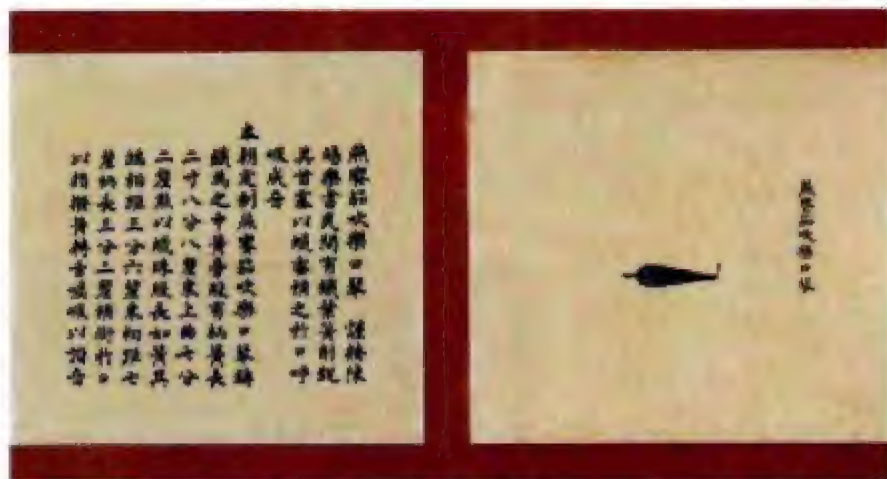 燕饗笳吹樂口琴
燕饗笳吹樂口琴　謹按陳
暘樂書民間有鐵葉簧削銳
其首塞以蠟蜜橫之於口呼
吸成音
本朝定制燕饗笳吹樂口琴鑄
鐵為之中簧旁股有柄簧長
二寸八分八釐末上曲七分
二釐點以蠟珠股長如簧其
端相距三分六釐末相距七
釐柄長三分二釐橫銜於口
以指撥簧轉舌噓吸以諧音